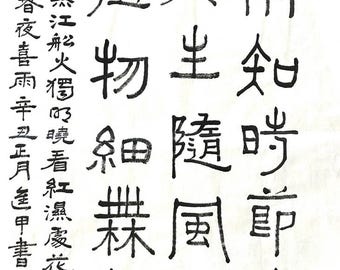 知時節
生隨風
物細無
江船火獨明曉看紅濕處花
春夜喜雨辛丑正月進甲書